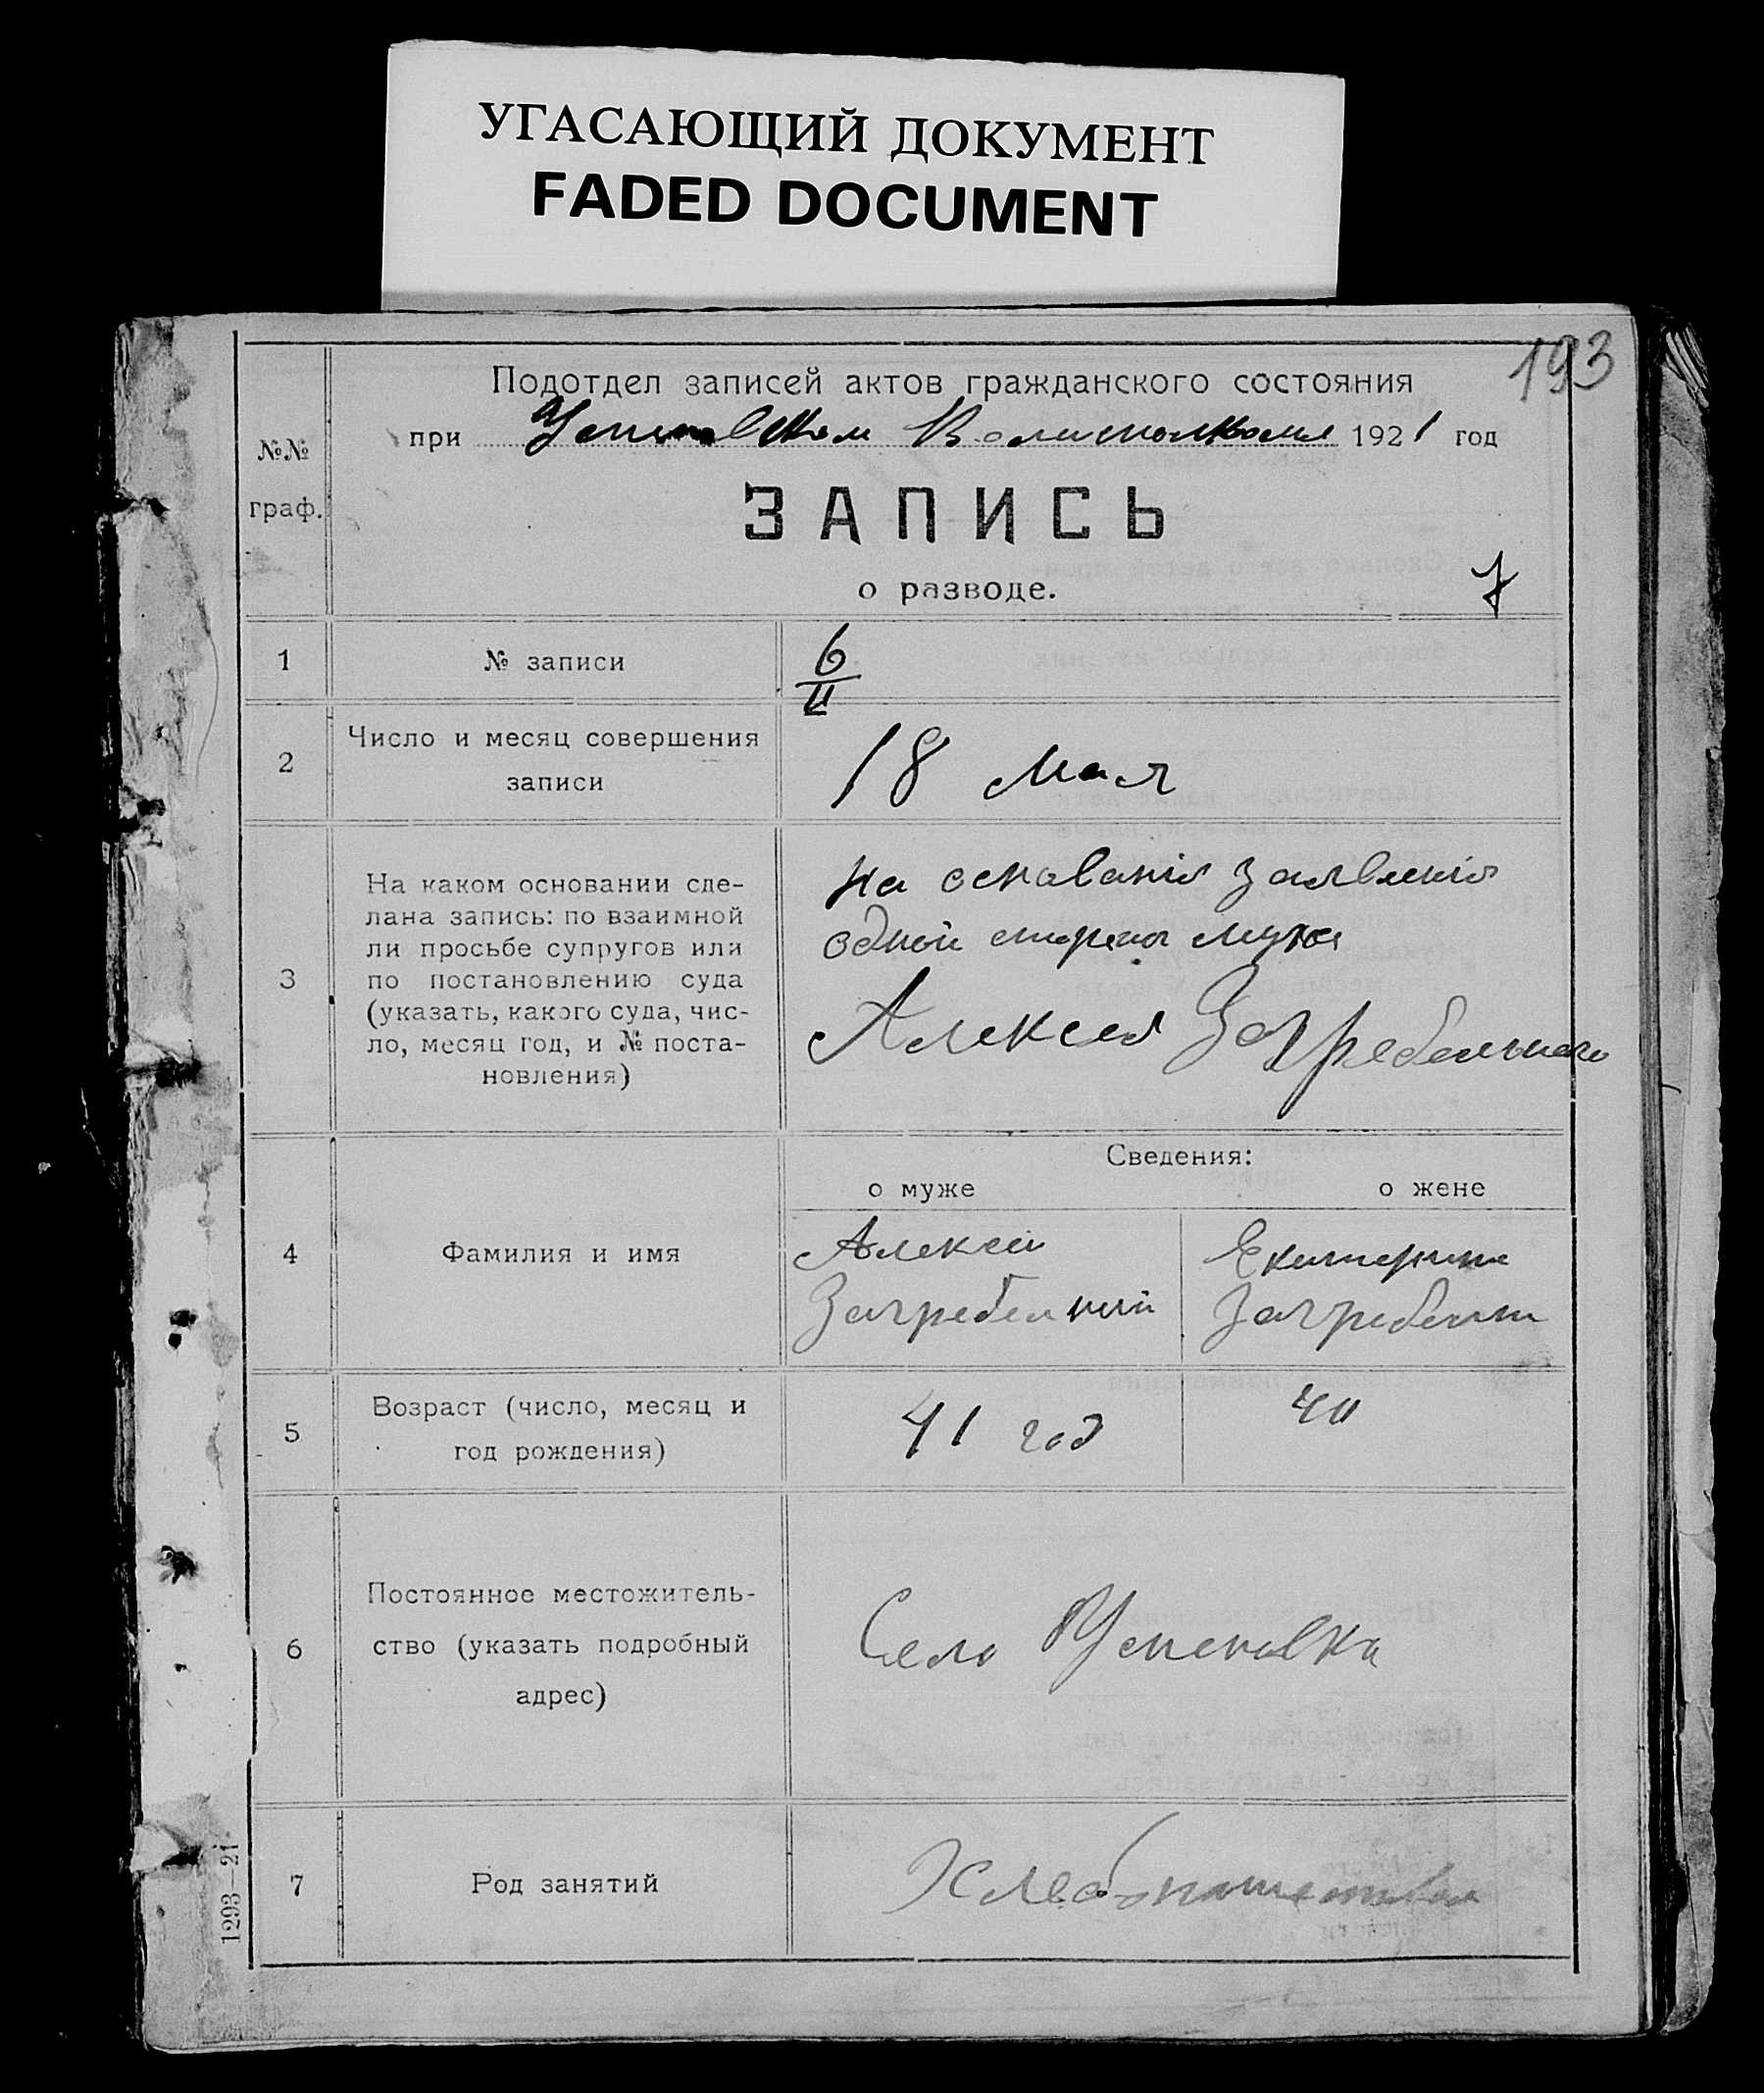 УГАСАЮЩИЙ ДОКУМЕНТ
FADED DOCUMENT
193
Подотдел записей актов гражданского состояния
при Волисполкоме 1921 год
№№
граф.
ЗАПИСЬ
о разводе.
7
1 № записи 6/II
2 Число и месяц совершения
записи
18 мая
3 На каком основании сде-
лана запись: по взаимной
ли просьбе супругов или
по постановлению суда
(указать, какого суда, чис-
ло, месяц год, и № поста-
новления)
на основанія заявленія
одной стороны мужа
Алексея Загребельнаго
Сведения:
о муже о жене
4 Фамилия и имя
Алексей
Загребелний
Екатерина
5 Возраст (число, месяц и
год рождения)
41 год
40
6 Постоянное местожитель-
ство (указать подробный
адрес)
Село Успеновка
7 Род занятий
1293—21